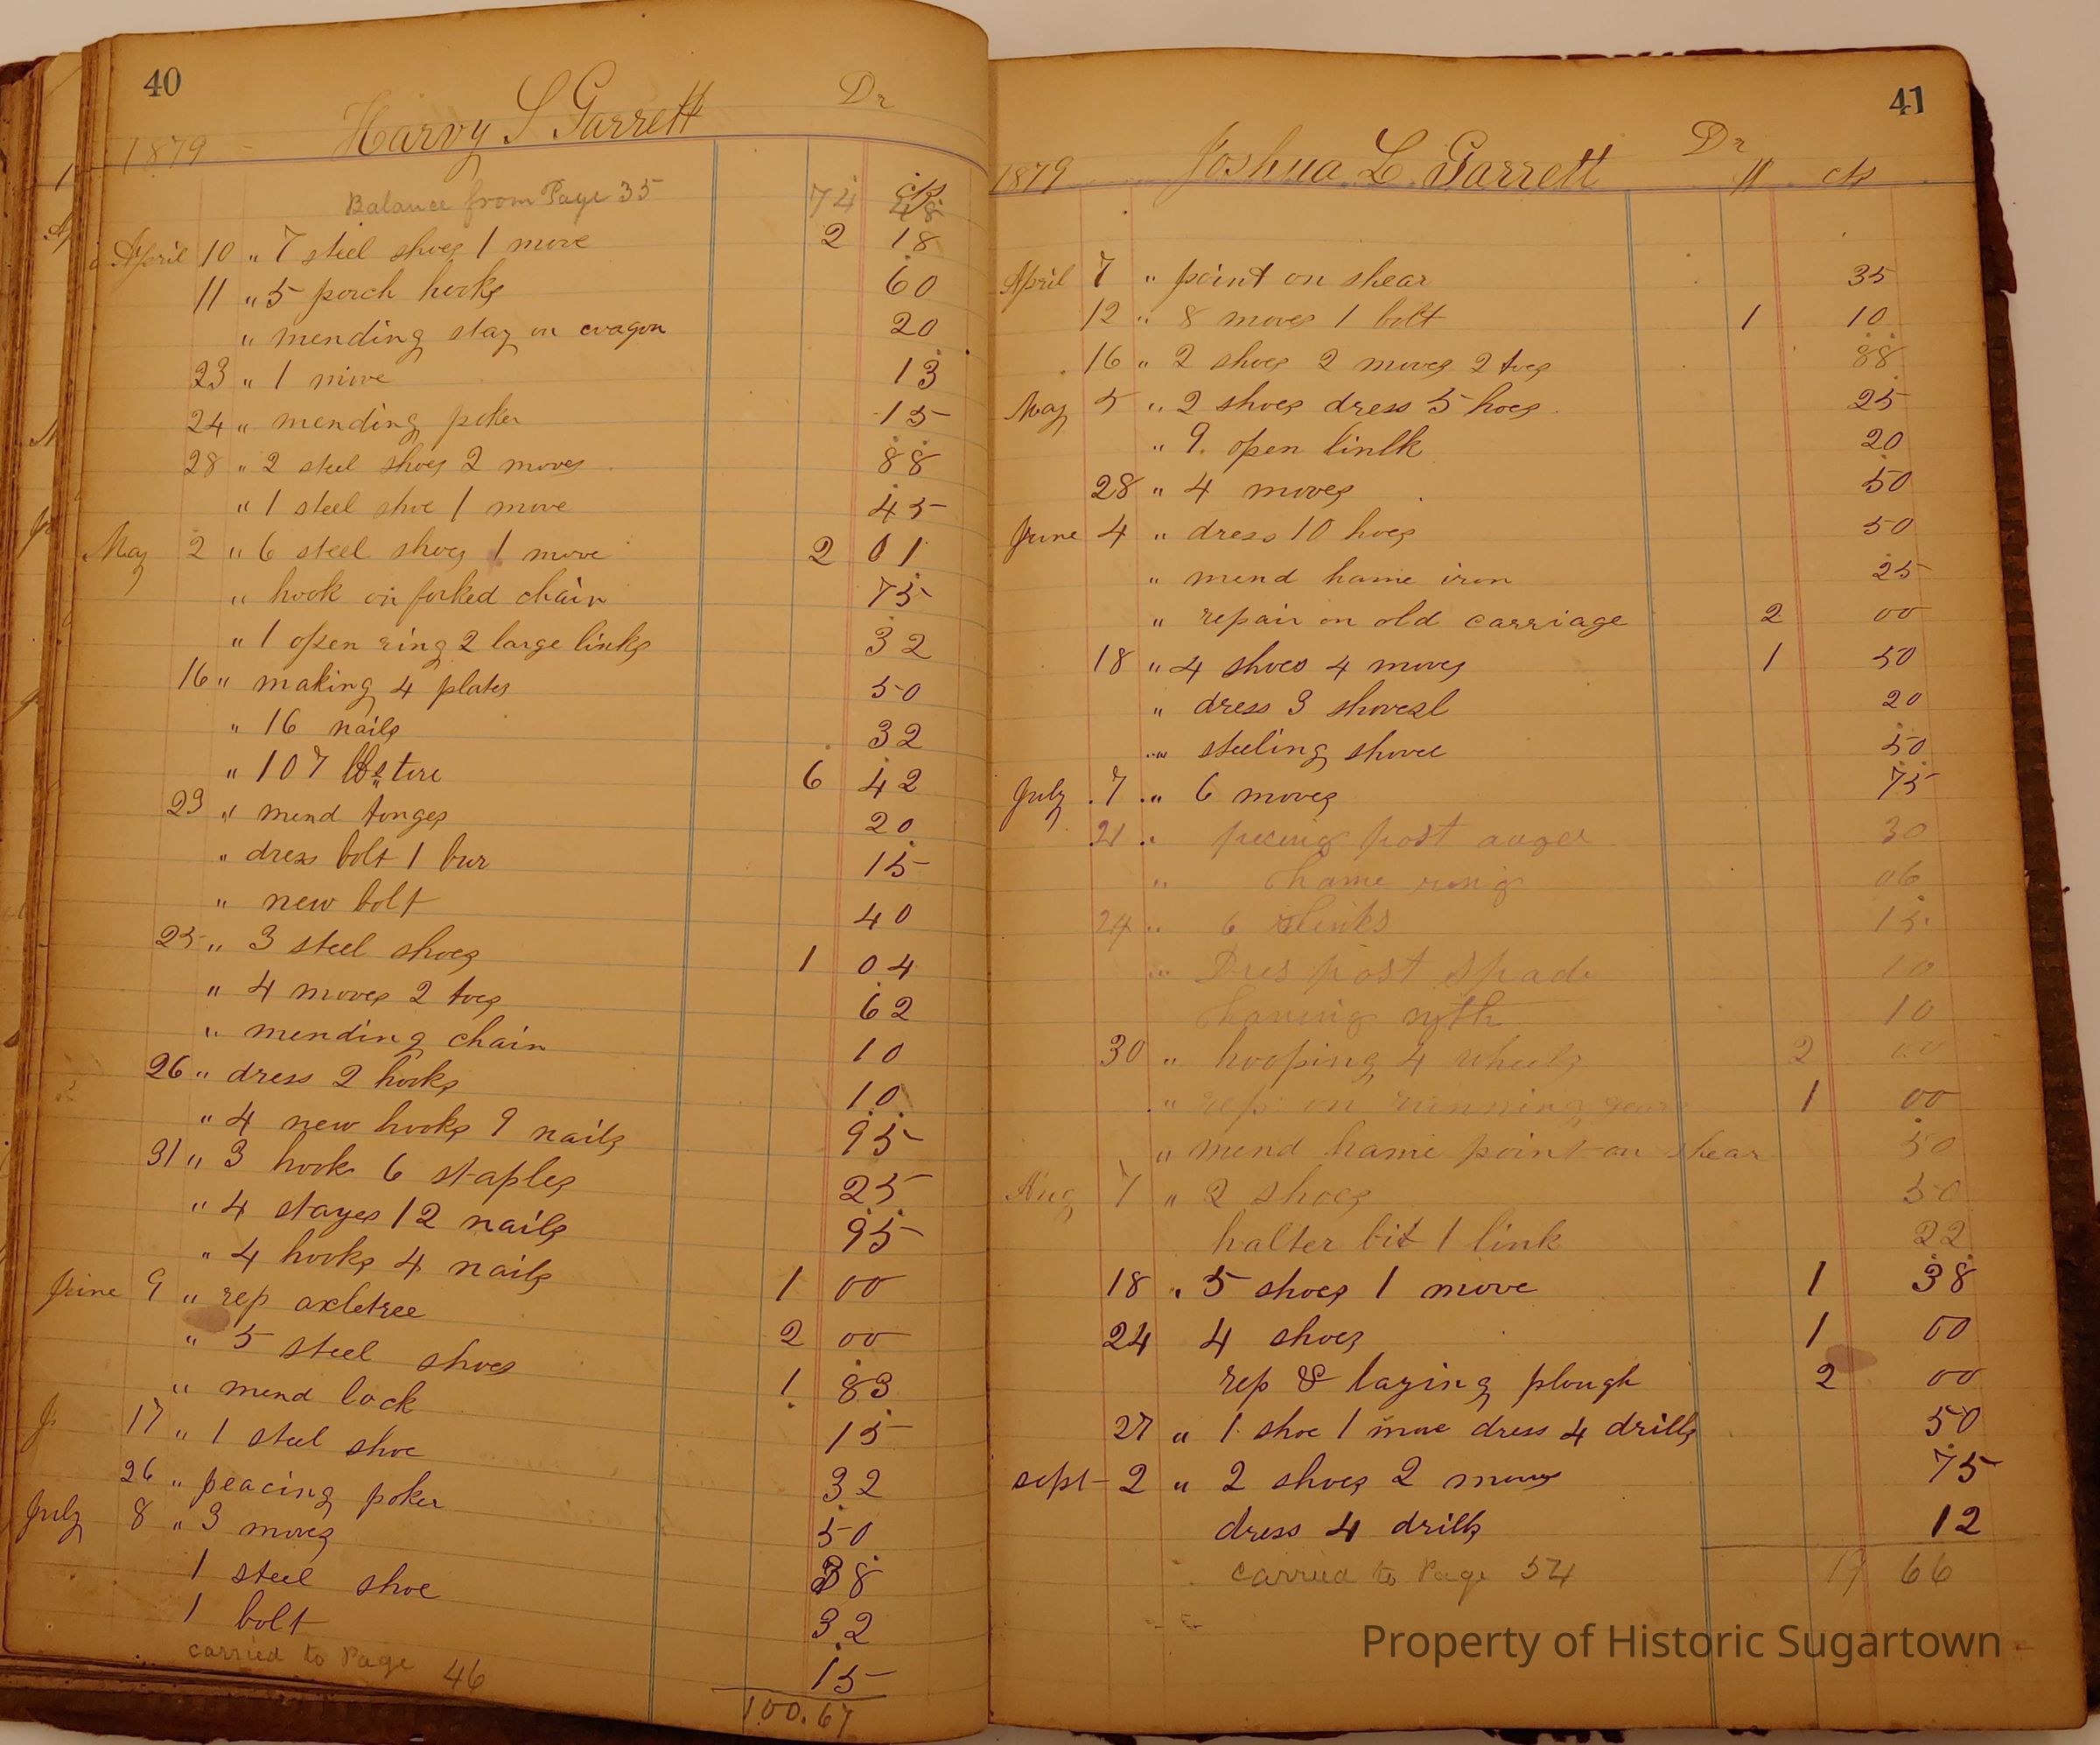 40
Harvy S Garrett Dr
1879
Balance from Page 35 74 cts 48
April 10 " 7 steel shoes 1 move 2 18
11 " 5 porch hooks 60
" mending stay on wagon 20
23 " 1 move 13
24 " mending poker 15
28 " 2 steel shoes 2 moves 88
" 1 steel shoe 1 move 45
May 2 " 6 steel shoes 1 move 2 01
" hook on forked chain 75
" 1 open ring 2 large links 32
16 " making 4 plates 50
" 16 nails 32
" 107 lbs tire 6 42
23 " mend tonges 20
" dress bolt 1 bur 15
" new bolt 40
25 " 3 steel shoes 1 04
" 4 moves 2 toes 62
" mending chain 10
26 " dress 2 hooks 10
" 4 new hooks 9 nails 95
31 " 3 hook 6 staples 25
" 4 stayes 12 nails 95
" 4 hooks 4 nails 1 00
June 9 " rep axletree 2 00
" 5 steel shoes 1 83
" mend lock 15
17 " 1 steel shoe 32
26 " peacing poker 50
July 8 " 3 moves 38
1 steel shoe 32
1 bolt 15
carried to Page 46 100.67
41
Joshua L Garrett Dr
1879 $ cts
April 7 " point on shear 35
12 " 8 moves 1 bolt 1 10
16 " 2 shoes 2 moves 2 toes 88
May 5 " 2 shoes dress 5 hoes 25
" 9 open linlk 20
28 " 4 moves 50
June 4 " dress 10 hoes 50
" mend hame iron 25
" repair on old carriage 2 00
18 " 4 shoes 4 moves 1 50
" dress 3 shovesl 20
" steeling shovel 50
July 7 " 6 moves 75
21 " piecing post auger 30
" hame ring 06
24 " 6 links 15
" Dres post spade 10
hanging syth 10
30 " hooping 4 wheels 2 00
" rep on running gear 1 00
" mend hame point on shear 50
Aug 7 " 2 shoes 50
halter bit 1 link 22
18 " 5 shoes 1 move 1 38
24 4 shoes 1 00
rep & laying plough 2 00
27 " 1 shoe 1 move dress 4 drills 50
sept 2 " 2 shoes 2 moves 75
dress 4 drills 12
carried to Page 54 19 66
Property of Historic Sugartown